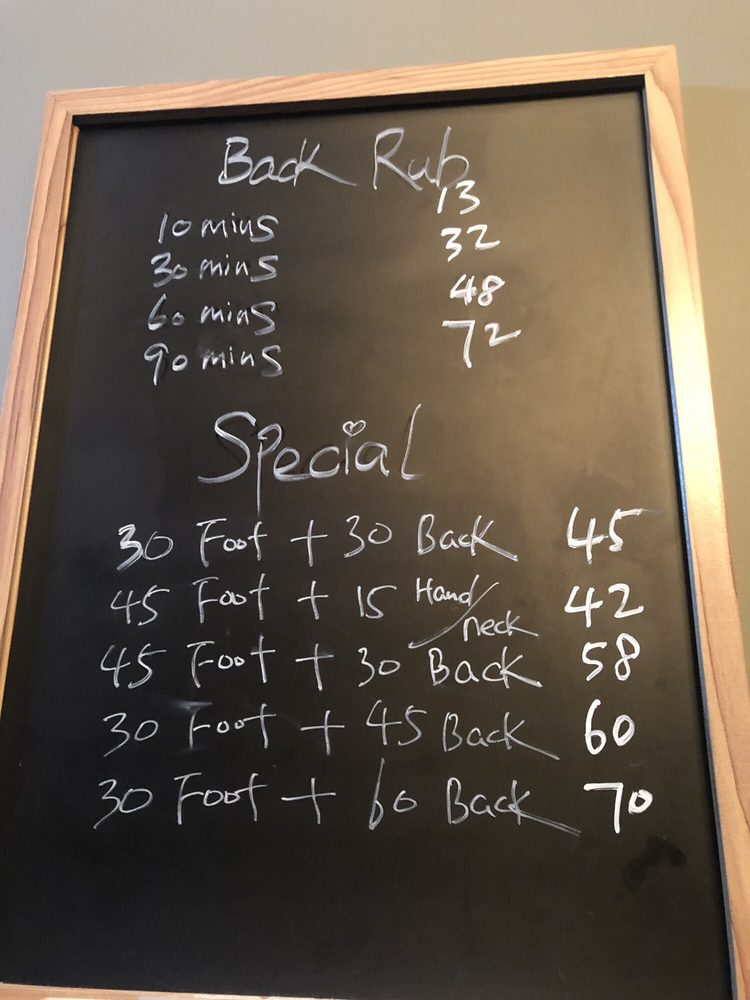 Back Rub
10 mins 13
30 mins 32
60 mins 48
90 mins 72
Special
30 Foot + 30 Back 45
45 Foot + 15 Hand/neck 42
45 Foot + 30 Back 58
30 Foot + 45 Back 60
30 Foot + 60 Back 70